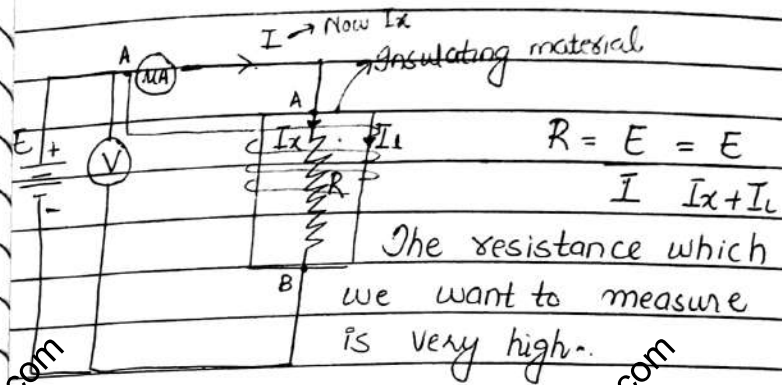 I → Now Ix
Insulating material
A
MA
A
E +
V
-
Ix
Il
R
B
R = E = E
I Ix+IL
The resistance which
we want to measure
is very high..
com
com